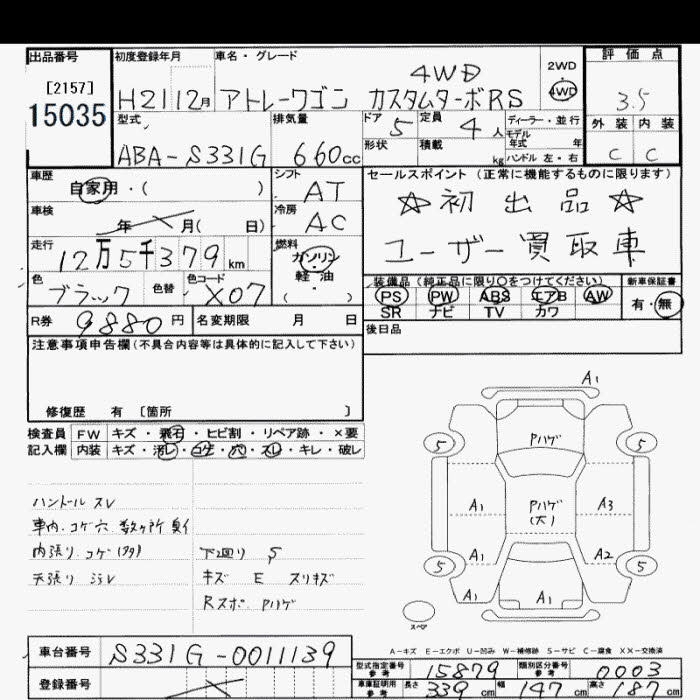 出品番号 初度登録年月 車名・グレード 2WD 評価点
[2157] 4WD ・
15035 H21 12月 アトレーワゴン カスタムターボRS 4WD 3.5
型式 排気量 ドア 5 定員 4人 ディーラー・並行 外装 内装
ABA-S331G 660cc 形状 積載 kg モデル年式 年 C C
ハンドル 左・右
車歴 シフト セールスポイント (正常に機能するものに限ります)
自家用・( ) AT ☆初出品☆
車検 冷房 ユーザー買取車
年 月( 日) AC
走行 12万5千379km 燃料 ガソリン・軽油 ( )
色 ブラック 色替 色コード X07
装備品 (純正品に限り○をつけてください) 新車保証書
PS PW ABS エアB AW 有・無
SR ナビ TV カワ
R券 9880円 名変期限 月 日 後日品
注意事項申告欄(不具合内容等は具体的に記入して下さい)
修復歴 有 [箇所 ]
検査員 FW キズ・飛石・ヒビ割・リペア跡・×要
記入欄 内装 キズ・汚レ・コゲ・穴・スレ・キレ・破レ
ハンドル スレ
車内.コゲ穴 数ヶ所 臭イ
内張り.コゲ
天張り ヨゴレ
下回り S
キズ E スリキズ
Rスポ. Pハゲ
A1
5 Pハゲ 5
A1 Pハゲ(大) A3
A1 A2
5 5
A1 A1
スペア
A-キズ E-エクボ U-凹み W-補修跡 S-サビ C-腐食 XX-交換済
車台番号 S331G-0011139
登録番号
型式指定番号 参考 15879 類別区分番号 参考 0003
車庫証明用 参考 長さ 339cm 幅 147cm 高さ 187cm